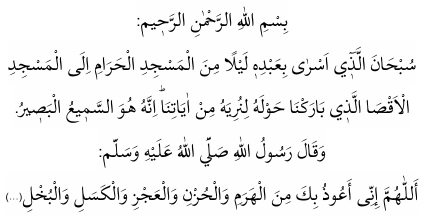 بِسْمِ اللهِ الرَّحْمٰنِ الرَّح۪يمِ:
سُبْحَانَ الَّذ۪ٓي اَسْرٰى بِعَبْدِه۪ لَيْلًا مِنَ الْمَسْجِدِ الْحَرَامِ اِلَى الْمَسْجِدِ
الْاَقْصَا الَّذ۪ي بَارَكْنَا حَوْلَهُ لِنُرِيَهُ مِنْ اٰيَاتِنَاۜ اِنَّهُ هُوَ السَّم۪يعُ الْبَص۪يرُ.
وَقَالَ رَسُولُ اللهِ صَلّٰي اللهُ عَلَيْهِ وَسَلَّم:
أَللّٰهُمَّ إِنِّى أَعُوذُ بِكَ مِنَ الْهَرَمِ وَالْحُزْنِ وَالْعَجْزِ وَالْكَسَلِ وَالْبُخْلِ(...)